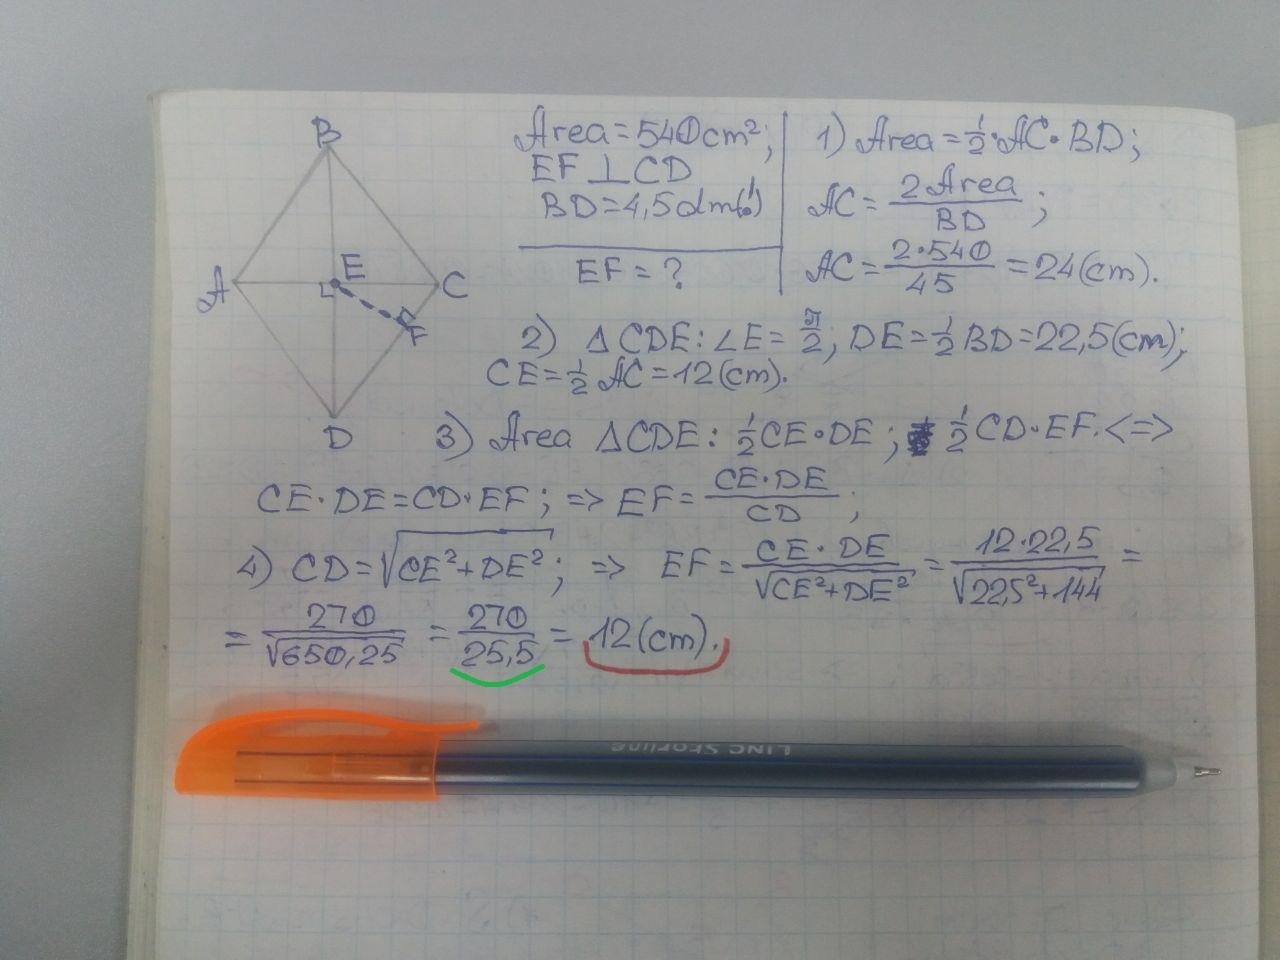 B
A
E
C
F
D
Area = 540 cm²;
EF ⊥ CD
BD = 4,5 dm(!)
EF = ?
1) Area = 1/2 · AC · BD;
AC = 2 Area / BD ;
AC = 2·540 / 45 = 24 (cm).
2) △ CDE: ∠E = π/2; DE = 1/2 BD = 22,5 (cm);
CE = 1/2 AC = 12 (cm).
3) Area △CDE: 1/2 CE · DE ; 1/2 CD · EF. <=>
CE · DE = CD · EF ; => EF = CE · DE / CD ;
4) CD = √(CE² + DE²) ; => EF = CE · DE / √(CE² + DE²) = 12·22,5 / √(22,5² + 144) =
= 270 / √650,25 = 270 / 25,5 = 12 (cm).
LINC Starline